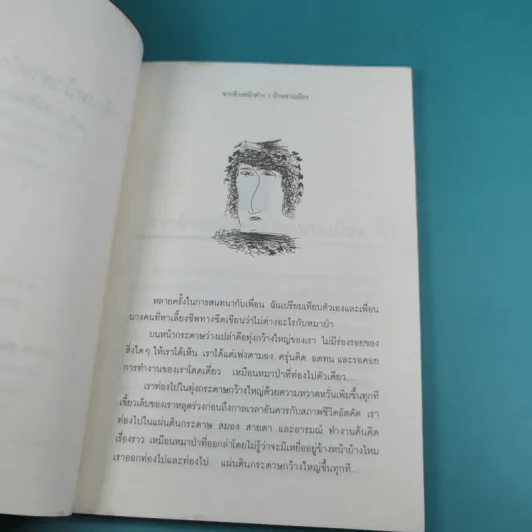 หลายครั้งในการสนทนากับเพื่อน ฉันเปรียบเทียบตัวเองและเพื่อน
บางคนที่หาเลี้ยงชีพทางขีดเขียนว่าไม่ต่างอะไรกับหมาป่า
บนหน้ากระดาษว่างเปล่าคือทุ่งกว้างของเรา ไม่มีร่องรอยของ
สิ่งใดๆ ให้เราได้เห็น เราได้แต่เพ่งตามอง ครุ่นคิด อดทน และรอคอย
การทำงานของเราโดดเดี่ยว เหมือนหมาป่าที่ท่องไปตัวเดียว....
เราท่องไปในทุ่งกระดาษกว้างใหญ่ด้วยความหวาดหวั่นเพิ่มขึ้นทุกที
เขี้ยวเล็บของเราหลุดร่วงก่อนถึงกาลเวลาอันควรกับสภาพชีวิตอัตคัด เรา
ท่องไปในแผ่นดินกระดาษ สมอง สายตา และอารมณ์ ทำงานค้นคิด
เรื่องราว เหมือนหมาป่าที่ออกล่าโดยไม่รู้ว่าจะมีเหยื่ออยู่ข้างหน้าบ้างไหม
เราออกท่องไปและท่องไป แผ่นดินกระดาษกว้างใหญ่ขึ้นทุกที...